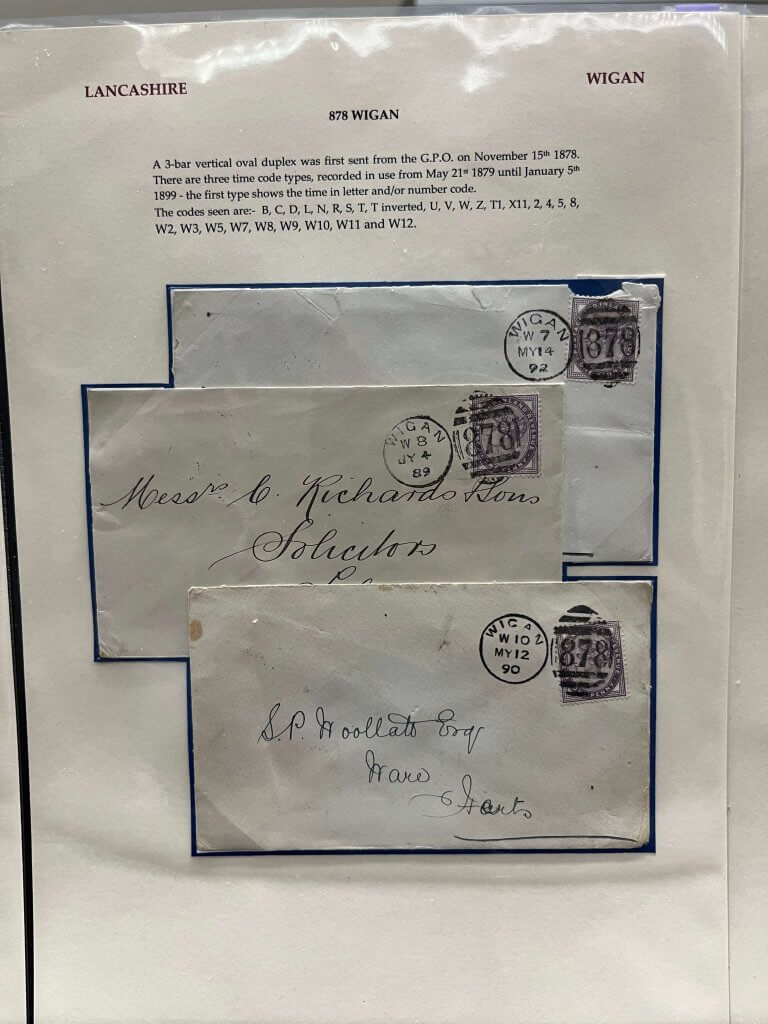 LANCASHIRE
WIGAN
878 WIGAN
A 3-bar vertical oval duplex was first sent from the G.P.O. on November 15th 1878.
There are three time code types, recorded in use from May 21st 1879 until January 5th
1899 - the first type shows the time in letter and/or number code.
The codes seen are:- B, C, D, L, N, R, S, T, T inverted, U, V, W, Z, T1, X11, 2, 4, 5, 8,
W2, W3, W5, W7, W8, W9, W10, W11 and W12.
WIGAN
W 7
MY14
92
878
WIGAN
W 8
JY 4
89
878
Messrs C. Richards & Sons
Solicitors
WIGAN
W 10
MY12
90
878
PENNY
S.P. Woollatt Esq
Ware
Herts